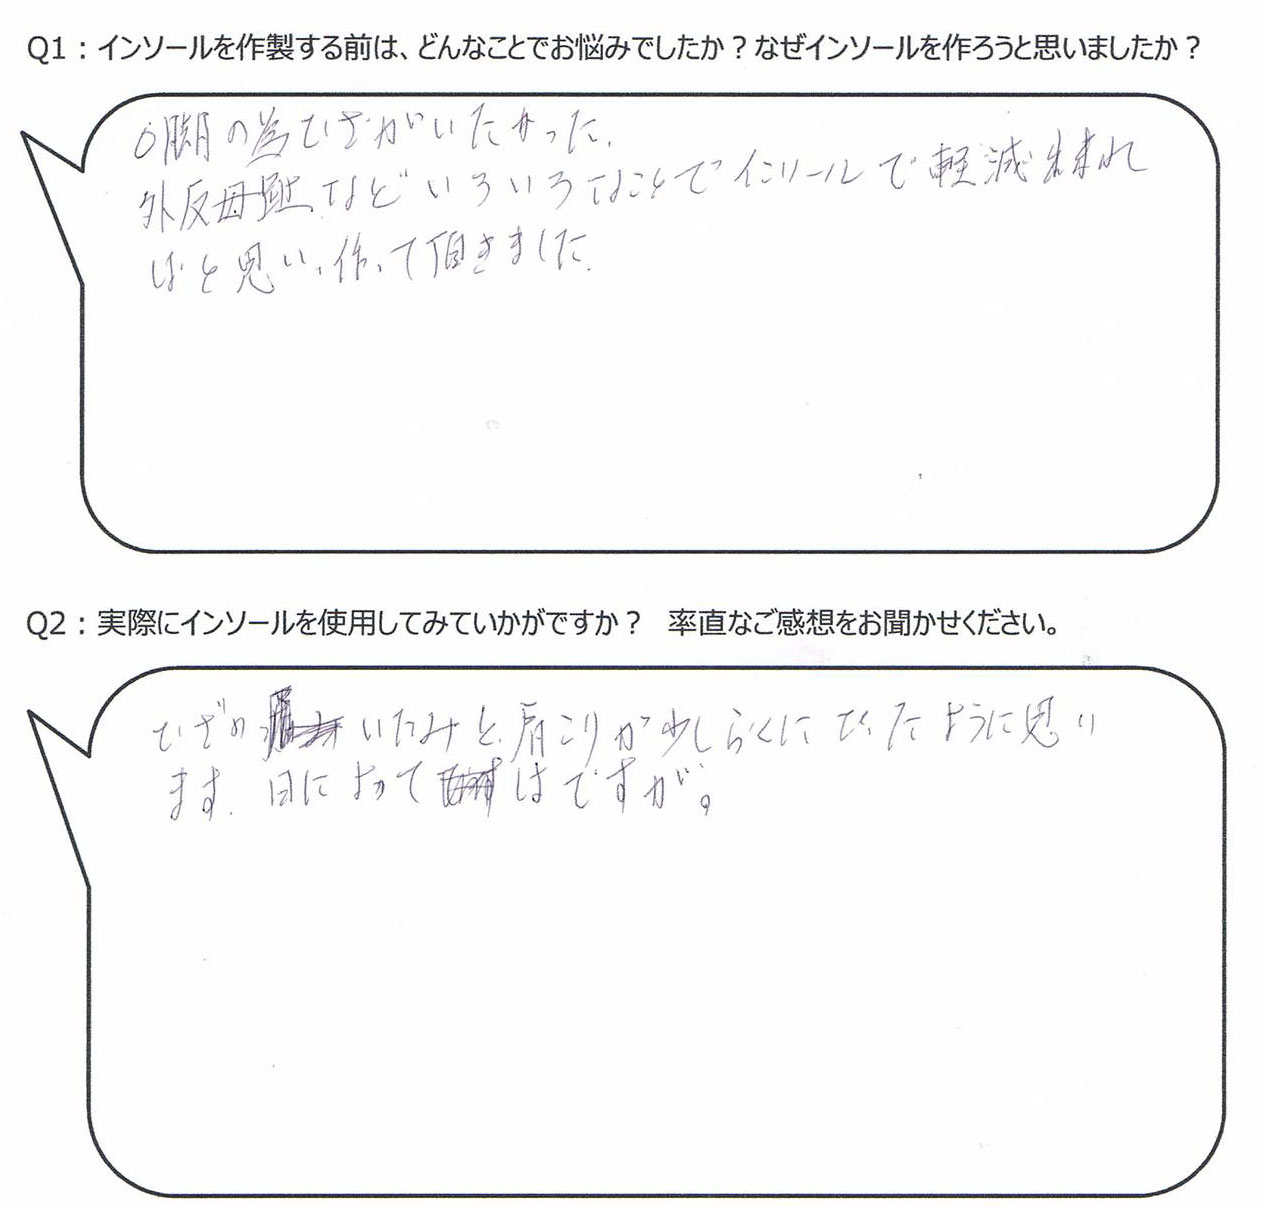 Q1：インソールを作製する前は、どんなことでお悩みでしたか？なぜインソールを作ろうと思いましたか？
O脚の為ひざがいたかった。
外反母趾などいろいろなことでインソールで軽減出来れ
ばと思い、作って頂きました。
Q2：実際にインソールを使用してみていかがですか？　率直なご感想をお聞かせください。
ひざの いたみと、肩こりが少しらくになったように思い
ます。日によって はですが。